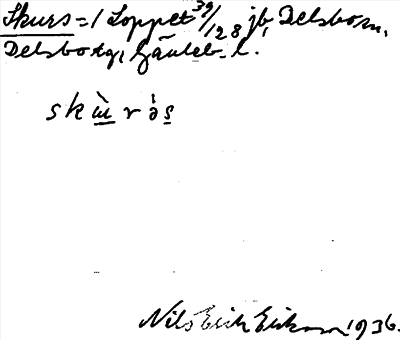 Skurs = / Loppet 39/128 jb, Delsbo sn,
Delsbo tg, Gäuleb. l.
skùrə̀s
Nils Erik Erikson 1936.